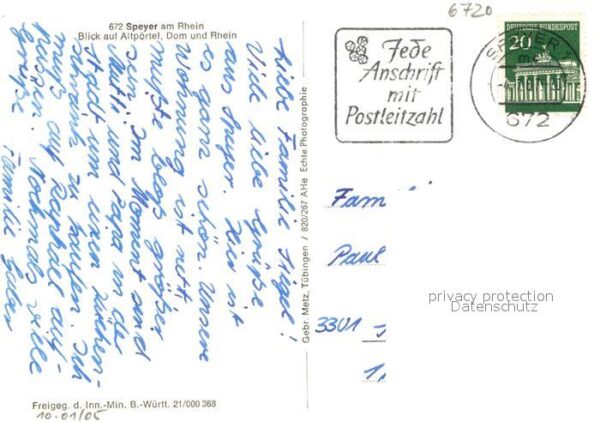 6720
672 Speyer am Rhein
Blick auf Altpörtel, Dom und Rhein
Liebe Familie
Viele liebe Grüße
aus Speyer. Hier ist
es ganz schön. Unsere
Wohnung ist nett,
müßte blos größer
sein. Im Moment sind
Mutti und Papa in der
Stadt um einen Küchen-
schrank zu kaufen. Ich
muß auf Raphael auf-
passen. Nochmals viele
Grüße
Familie
Gebr. Metz, Tübingen / 820/267 AHe Echte Photographie
Freigeg. d. Inn.-Min. B.-Württ. 21/000 368
10.01/05
Jede
Anschrift
mit
Postleitzahl
SPEYER
672
DEUTSCHE BUNDESPOST
20
Fam
Paul
3301
privacy protection
Datenschutz